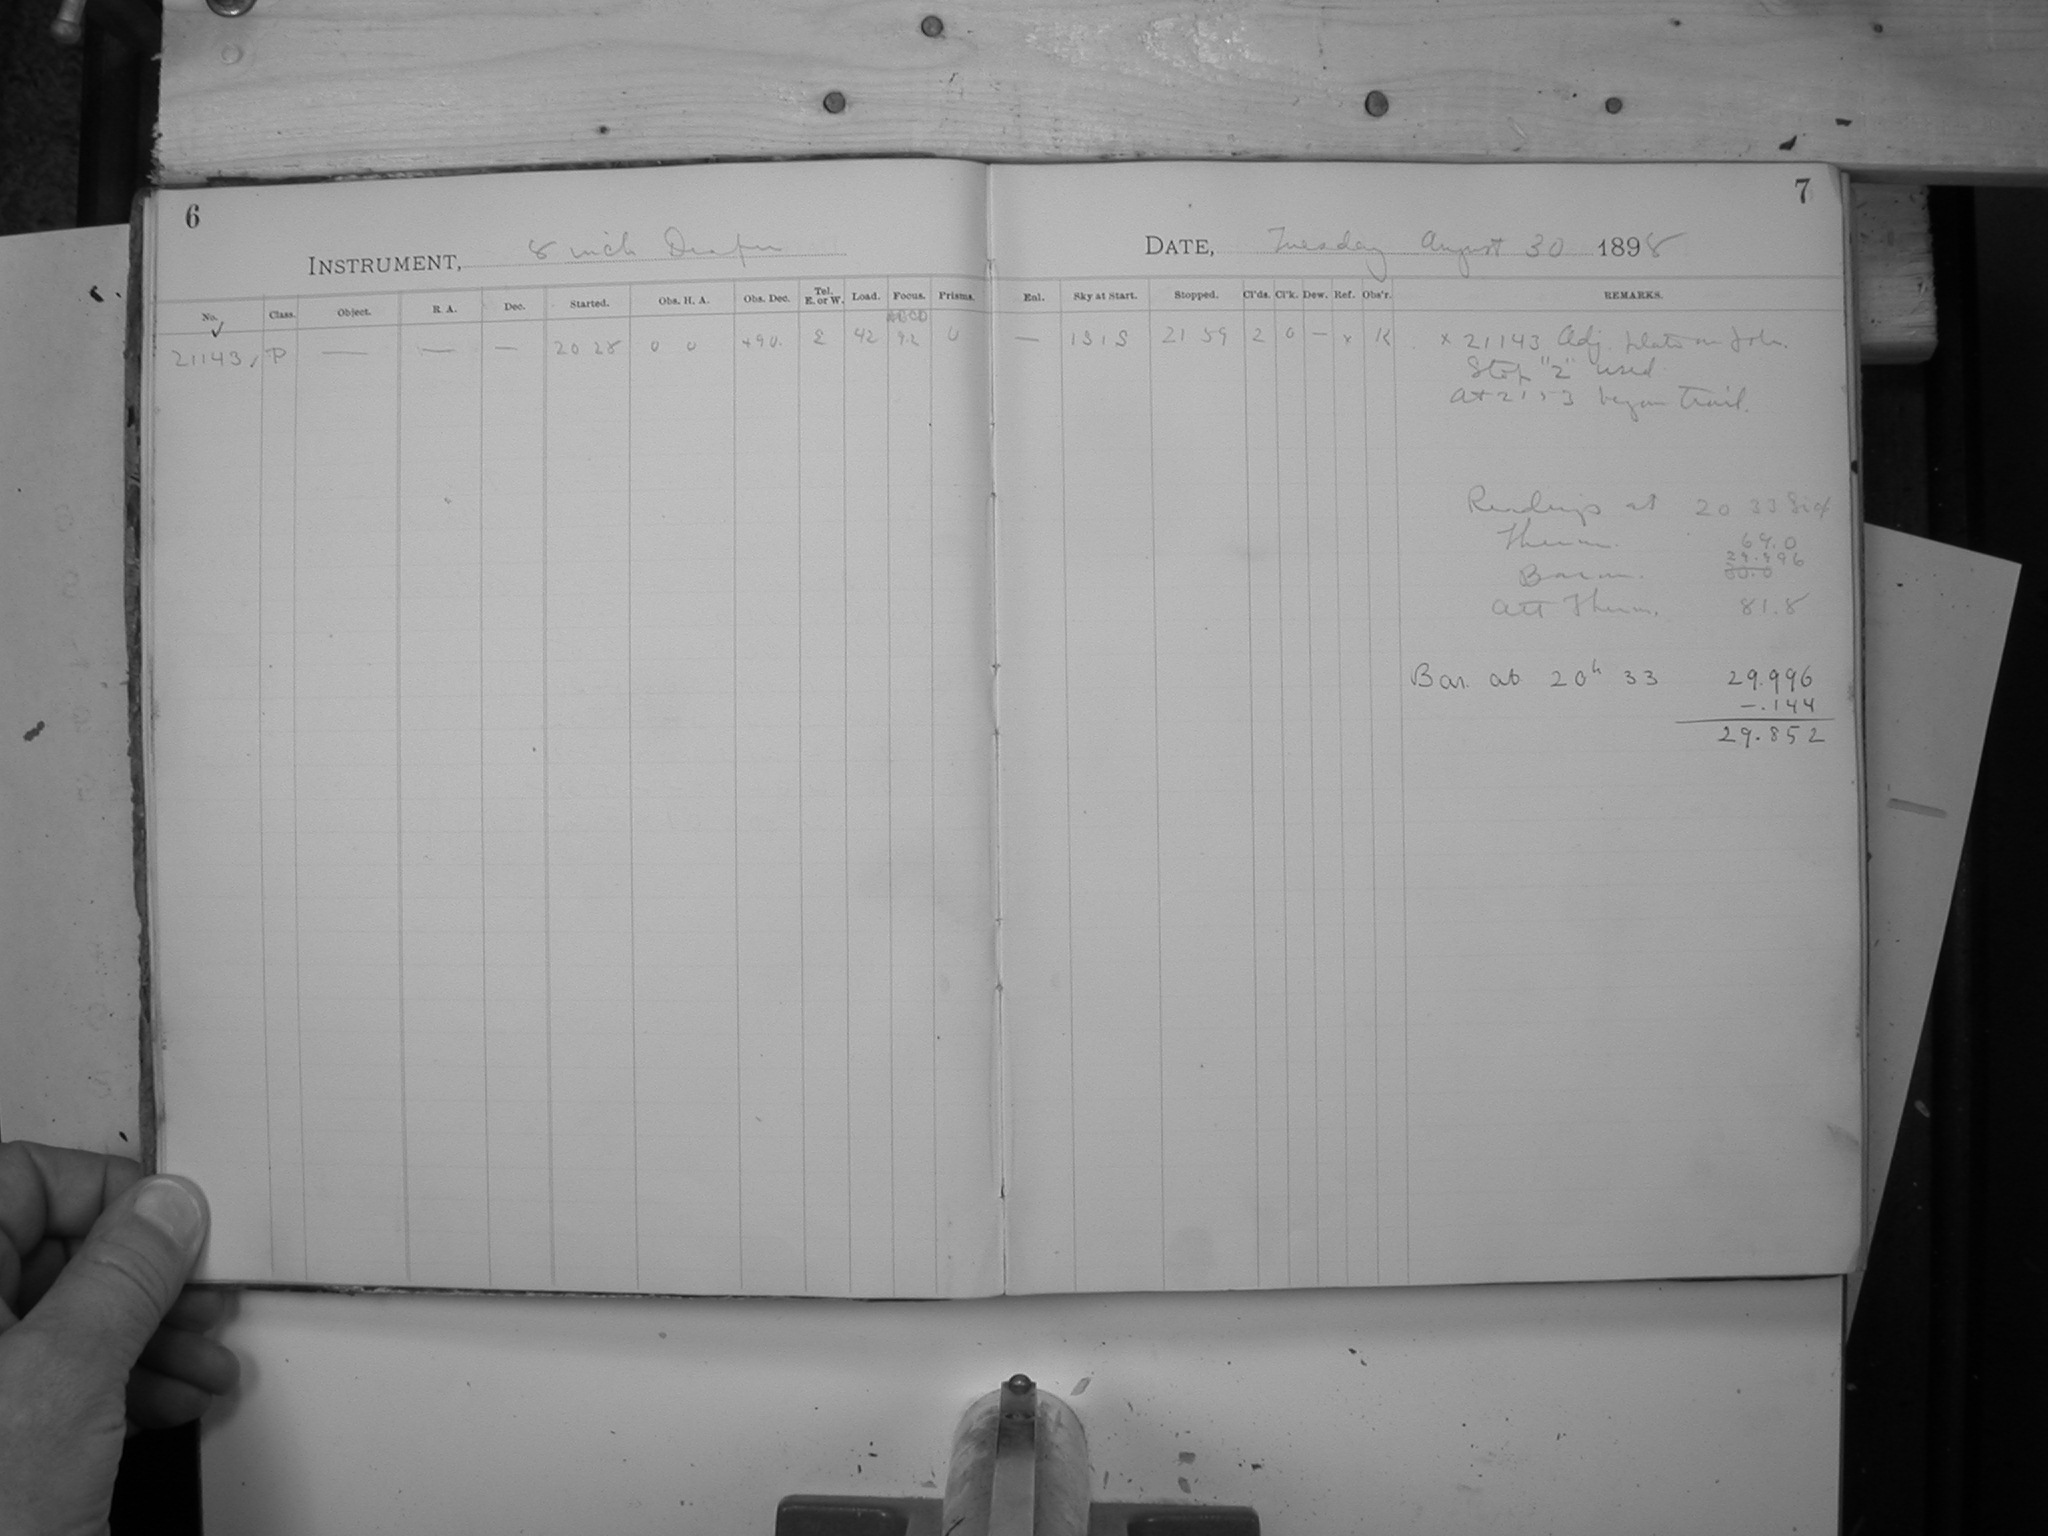 6
INSTRUMENT, 8 inch Draper
No. Class. Object. R. A. Dec. Started. Obs. H. A. Obs. Dec. Tel. E. or W. Load. Focus. Prisms.
21143 P — — — 20 28 0 0 +90. E 42 9.2 0
7
DATE, Tuesday August 30 1898
Enl. Sky at Start. Stopped. Cl'ds. Cl'k. Dew. Ref. Obs'r. REMARKS.
— 21 59 2 0 — x K x 21143 Adj. plate on
Stop "2" used
At 21 53 began trail.
Readings at 20 33 Sid
Therm. 69.0
29.996
Barom. 30.0
Att Therm. 81.8
Bar. at 20h 33 29.996
-.144
29.852